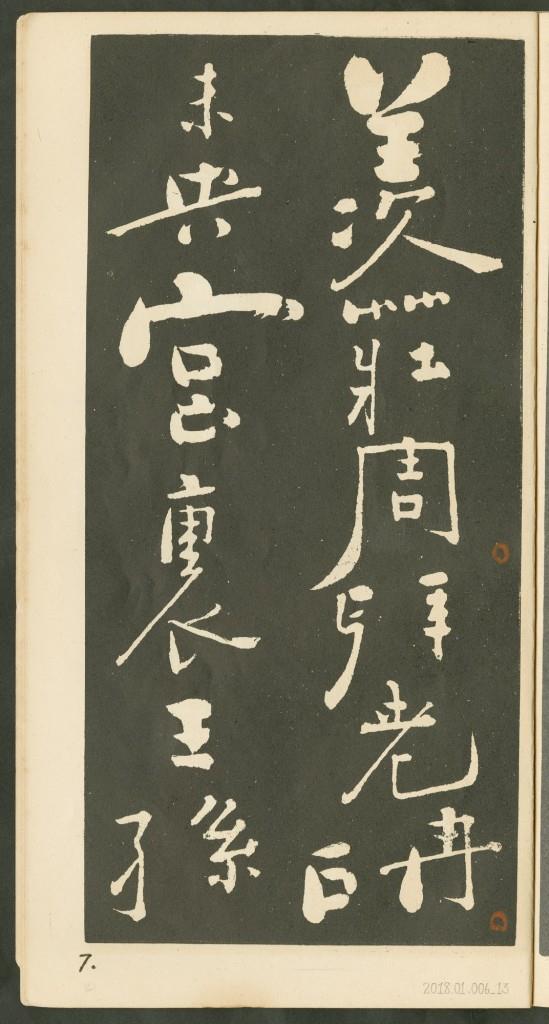 羨莊周拜老聃
未央宮裏王孫
7.
2018.01.006_13